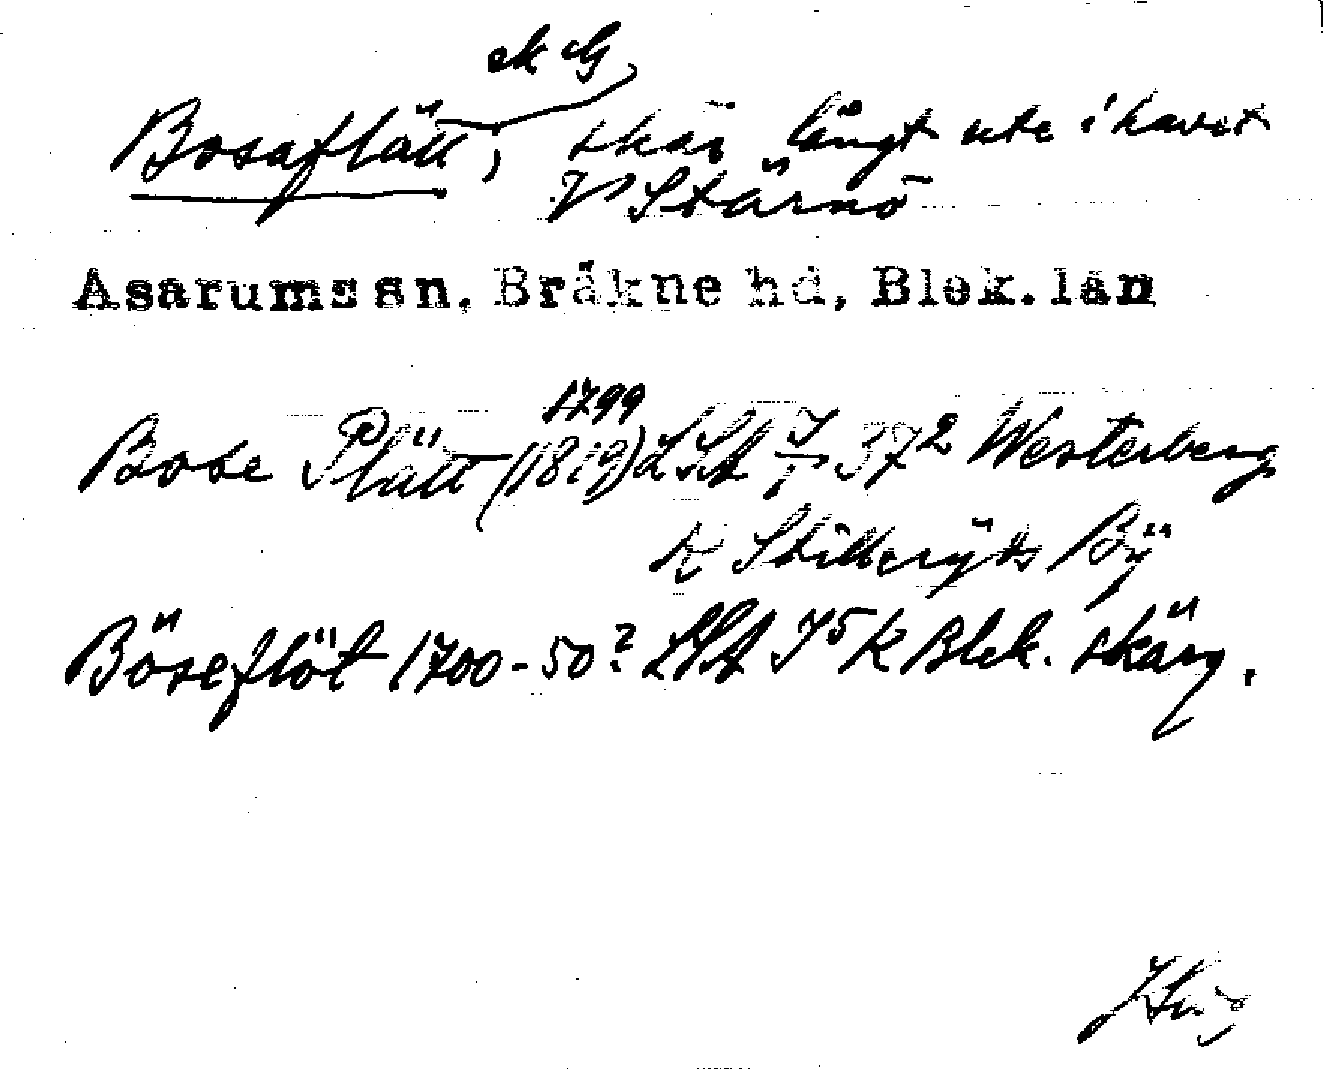 ek G
Bosaflätt, skär långt ute i havet
V Stärnö
Asarums sn. Bräkne hd, Blek. län
1799
Bose Plätt (1819) LSA 37² Westerberg
k Stilleryds Bÿ
Böseflöt 1700-50? LSA J⁵ K Blek. skärg.